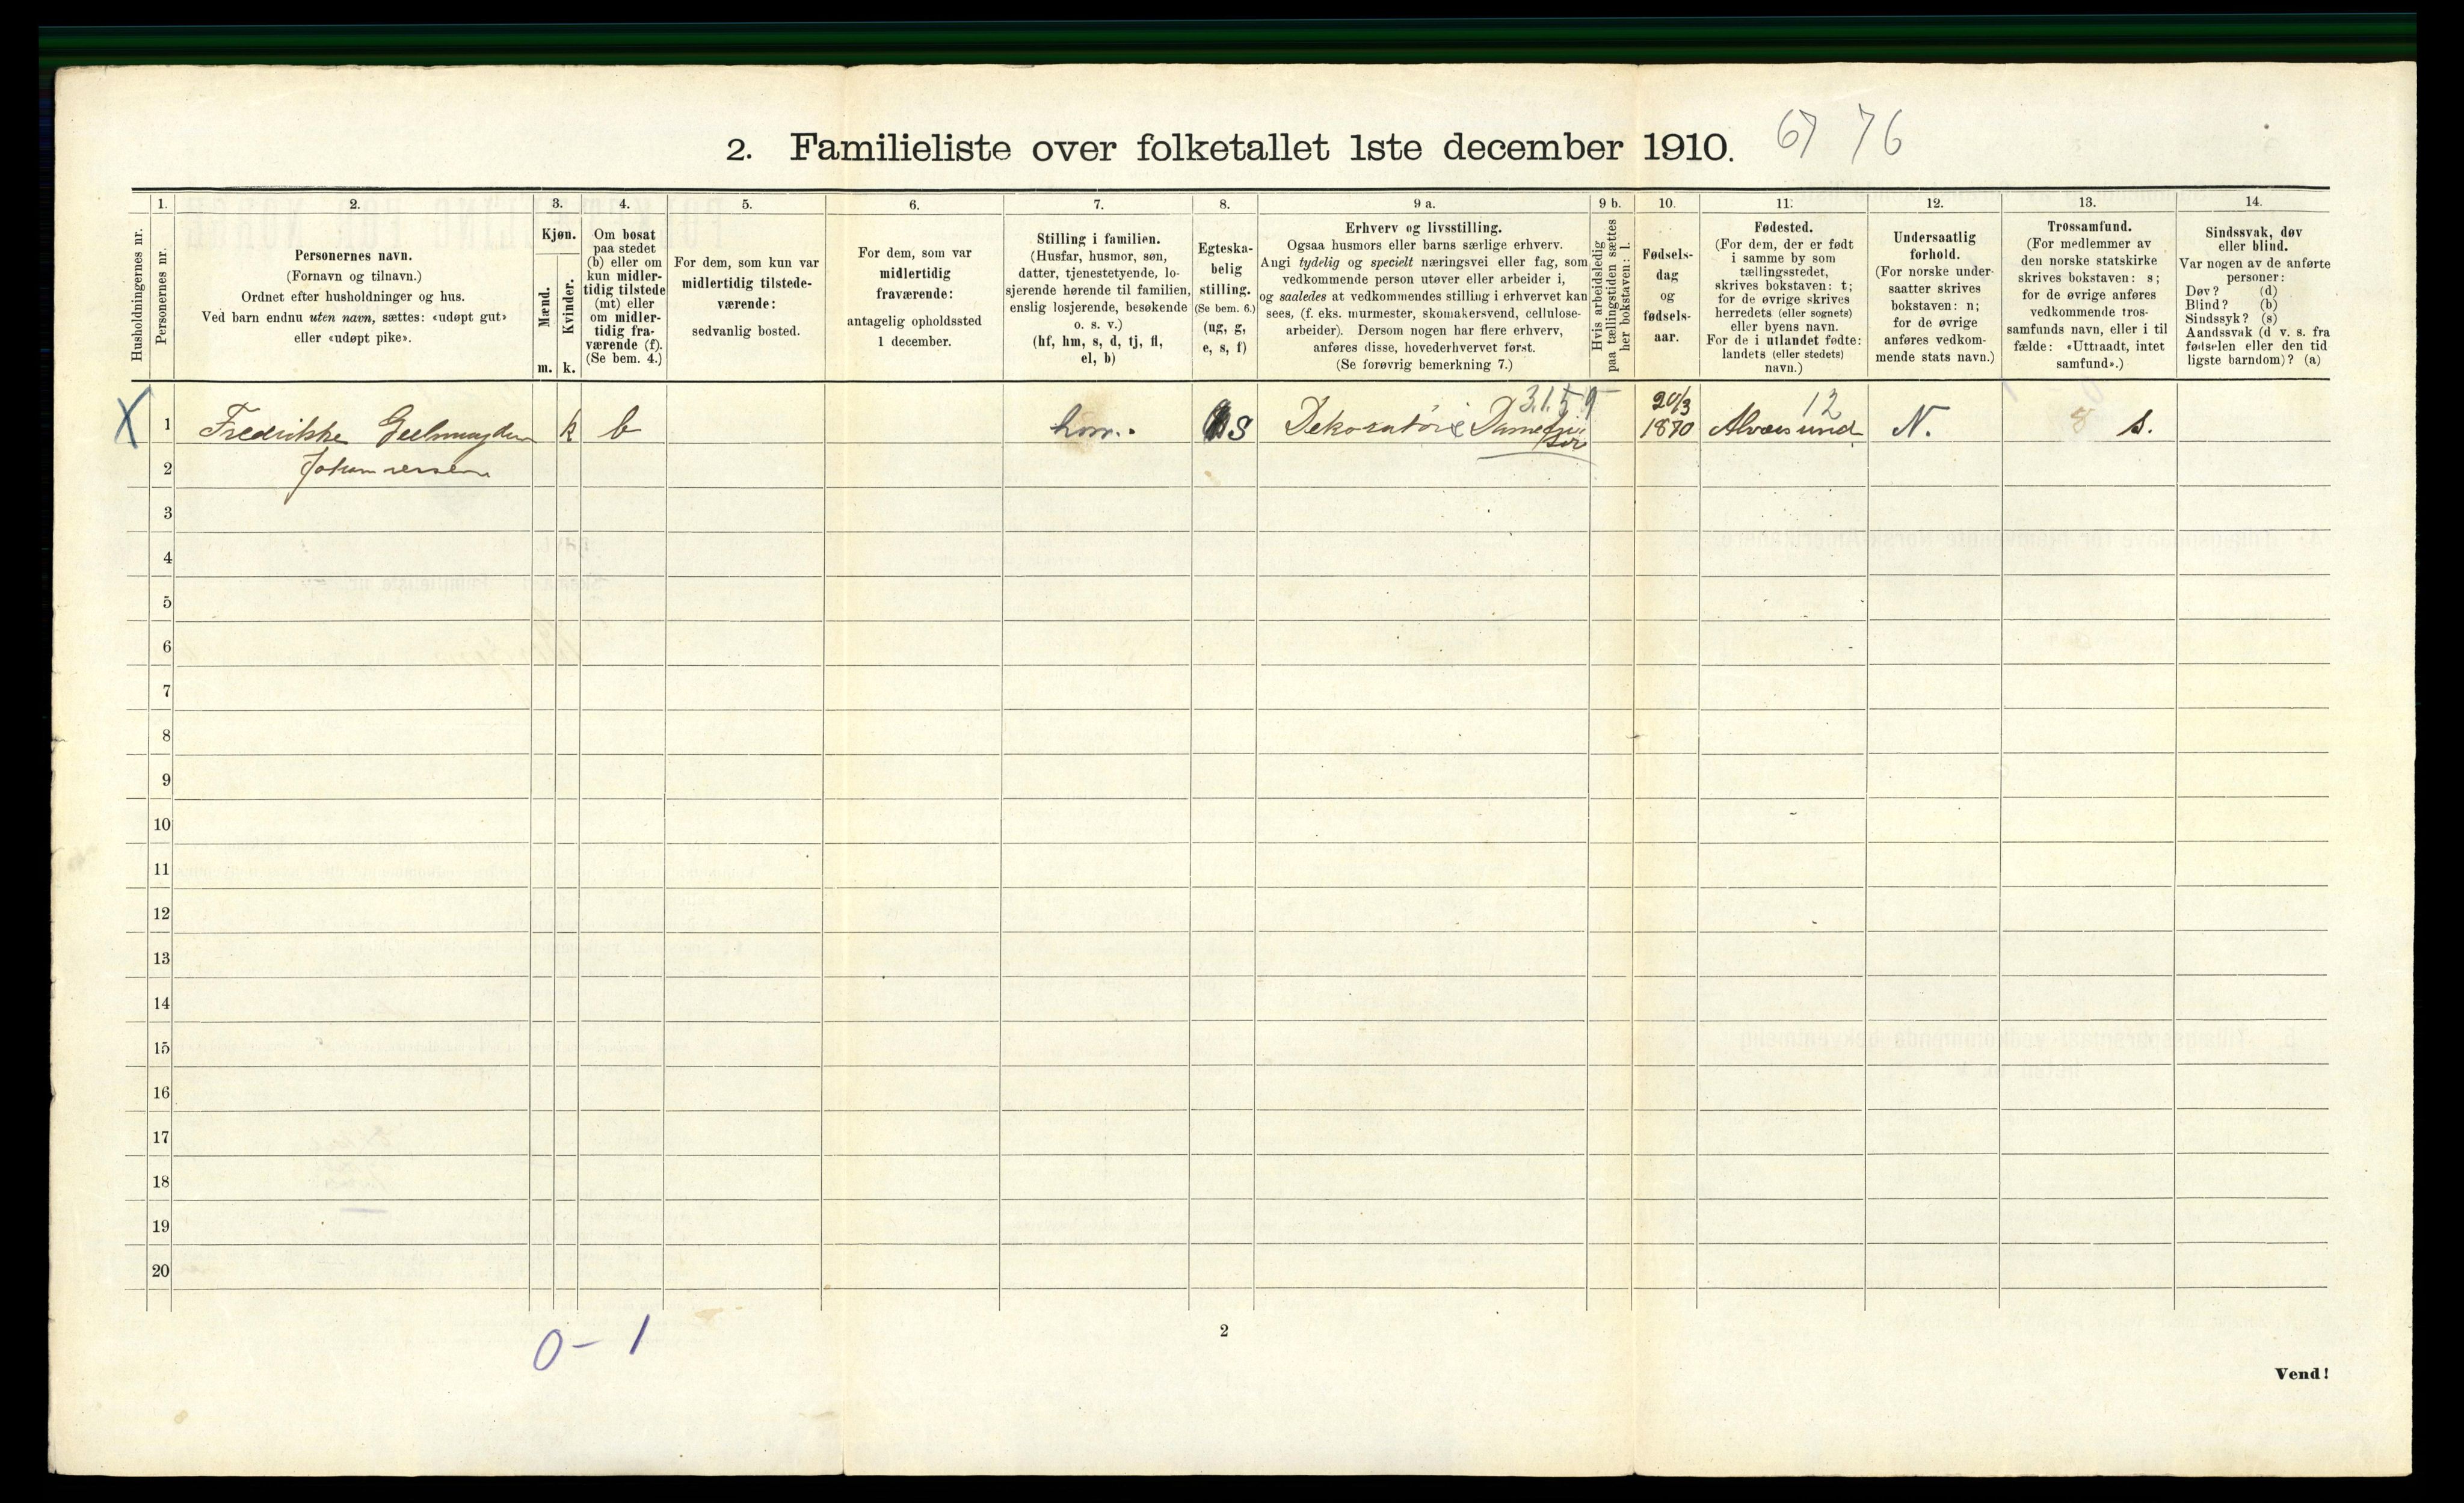 2. Familieliste over folketallet 1ste december 1910. 67 76
Husholdningernes nr.
1.
Personernes nr.
2.
Personernes navn.
(Fornavn og tilnavn.)
Ordnet efter husholdninger og hus.
Ved barn endnu uten navn, sættes: «udøpt gut»
eller «udøpt pike».
3.
Kjøn.
Mænd.
Kvinder.
m. k.
4.
Om bosat
paa stedet
(b) eller om
kun midler-
tidig tilstede
(mt) eller
om midler-
tidig fra-
værende (f).
(Se bem. 4.)
5.
For dem, som kun var
midlertidig tilstede-
værende:
sedvanlig bosted.
6.
For dem, som var
midlertidig
fraværende:
antagelig opholdssted
1 december.
7.
Stilling i familien.
(Husfar, husmor, søn,
datter, tjenestetyende, lo-
sjerende hørende til familien,
enslig losjerende, besøkende
o. s. v.)
(hf, hm, s, d, tj, fl,
el, b)
8.
Egteska-
belig
stilling.
(Se bem. 6.)
(ug, g,
e, s, f)
9 a.
Erhverv og livsstilling.
Ogsaa husmors eller barns særlige erhverv.
Angi tydelig og specielt næringsvei eller fag, som
vedkommende person utøver eller arbeider i,
og saaledes at vedkommendes stilling i erhvervet kan
sees, (f. eks. murmester, skomakersvend, cellulose-
arbeider). Dersom nogen har flere erhverv,
anføres disse, hovederhvervet først.
(Se forøvrig bemerkning 7.)
9 b.
Hvis arbeidsledig
paa tællingstiden sættes
her bokstaven: l.
10.
Fødsels-
dag
og
fødsels-
aar.
11.
Fødested.
(For dem, der er født
i samme by som
tællingsstedet,
skrives bokstaven: t;
for de øvrige skrives
herredets (eller sognets)
eller byens navn.
For de i utlandet fødte:
landets (eller stedets)
navn.)
12.
Undersaatlig
forhold.
(For norske under-
saatter skrives
bokstaven: n;
for de øvrige
anføres vedkom-
mende stats navn.)
13.
Trossamfund.
(For medlemmer av
den norske statskirke
skrives bokstaven: s;
for de øvrige anføres
vedkommende tros-
samfunds navn, eller i til
fælde: «Uttraadt, intet
samfund».)
14.
Sindssvak, døv
eller blind.
Var nogen av de anførte
personer:
Døv? (d)
Blind? (b)
Sindssyk? (s)
Aandssvak (d v. s. fra
fødselen eller den tid
ligste barndom)? (a)
X 1 Fredrikke Geelmuyden k b hm. s Dekoratør Damefri 20/3 1870 Alværsund 12 N. s.
sør
3159
2 Johannessen
3
4
5
6
7
8
9
10
11
12
13
14
15
16
17
18
19
20
0 - 1
2
Vend!